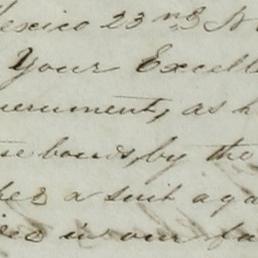 Mexico 23 nd N
Your Excell
vernment, as h
se bonds, by the
a suit aga
in our fa